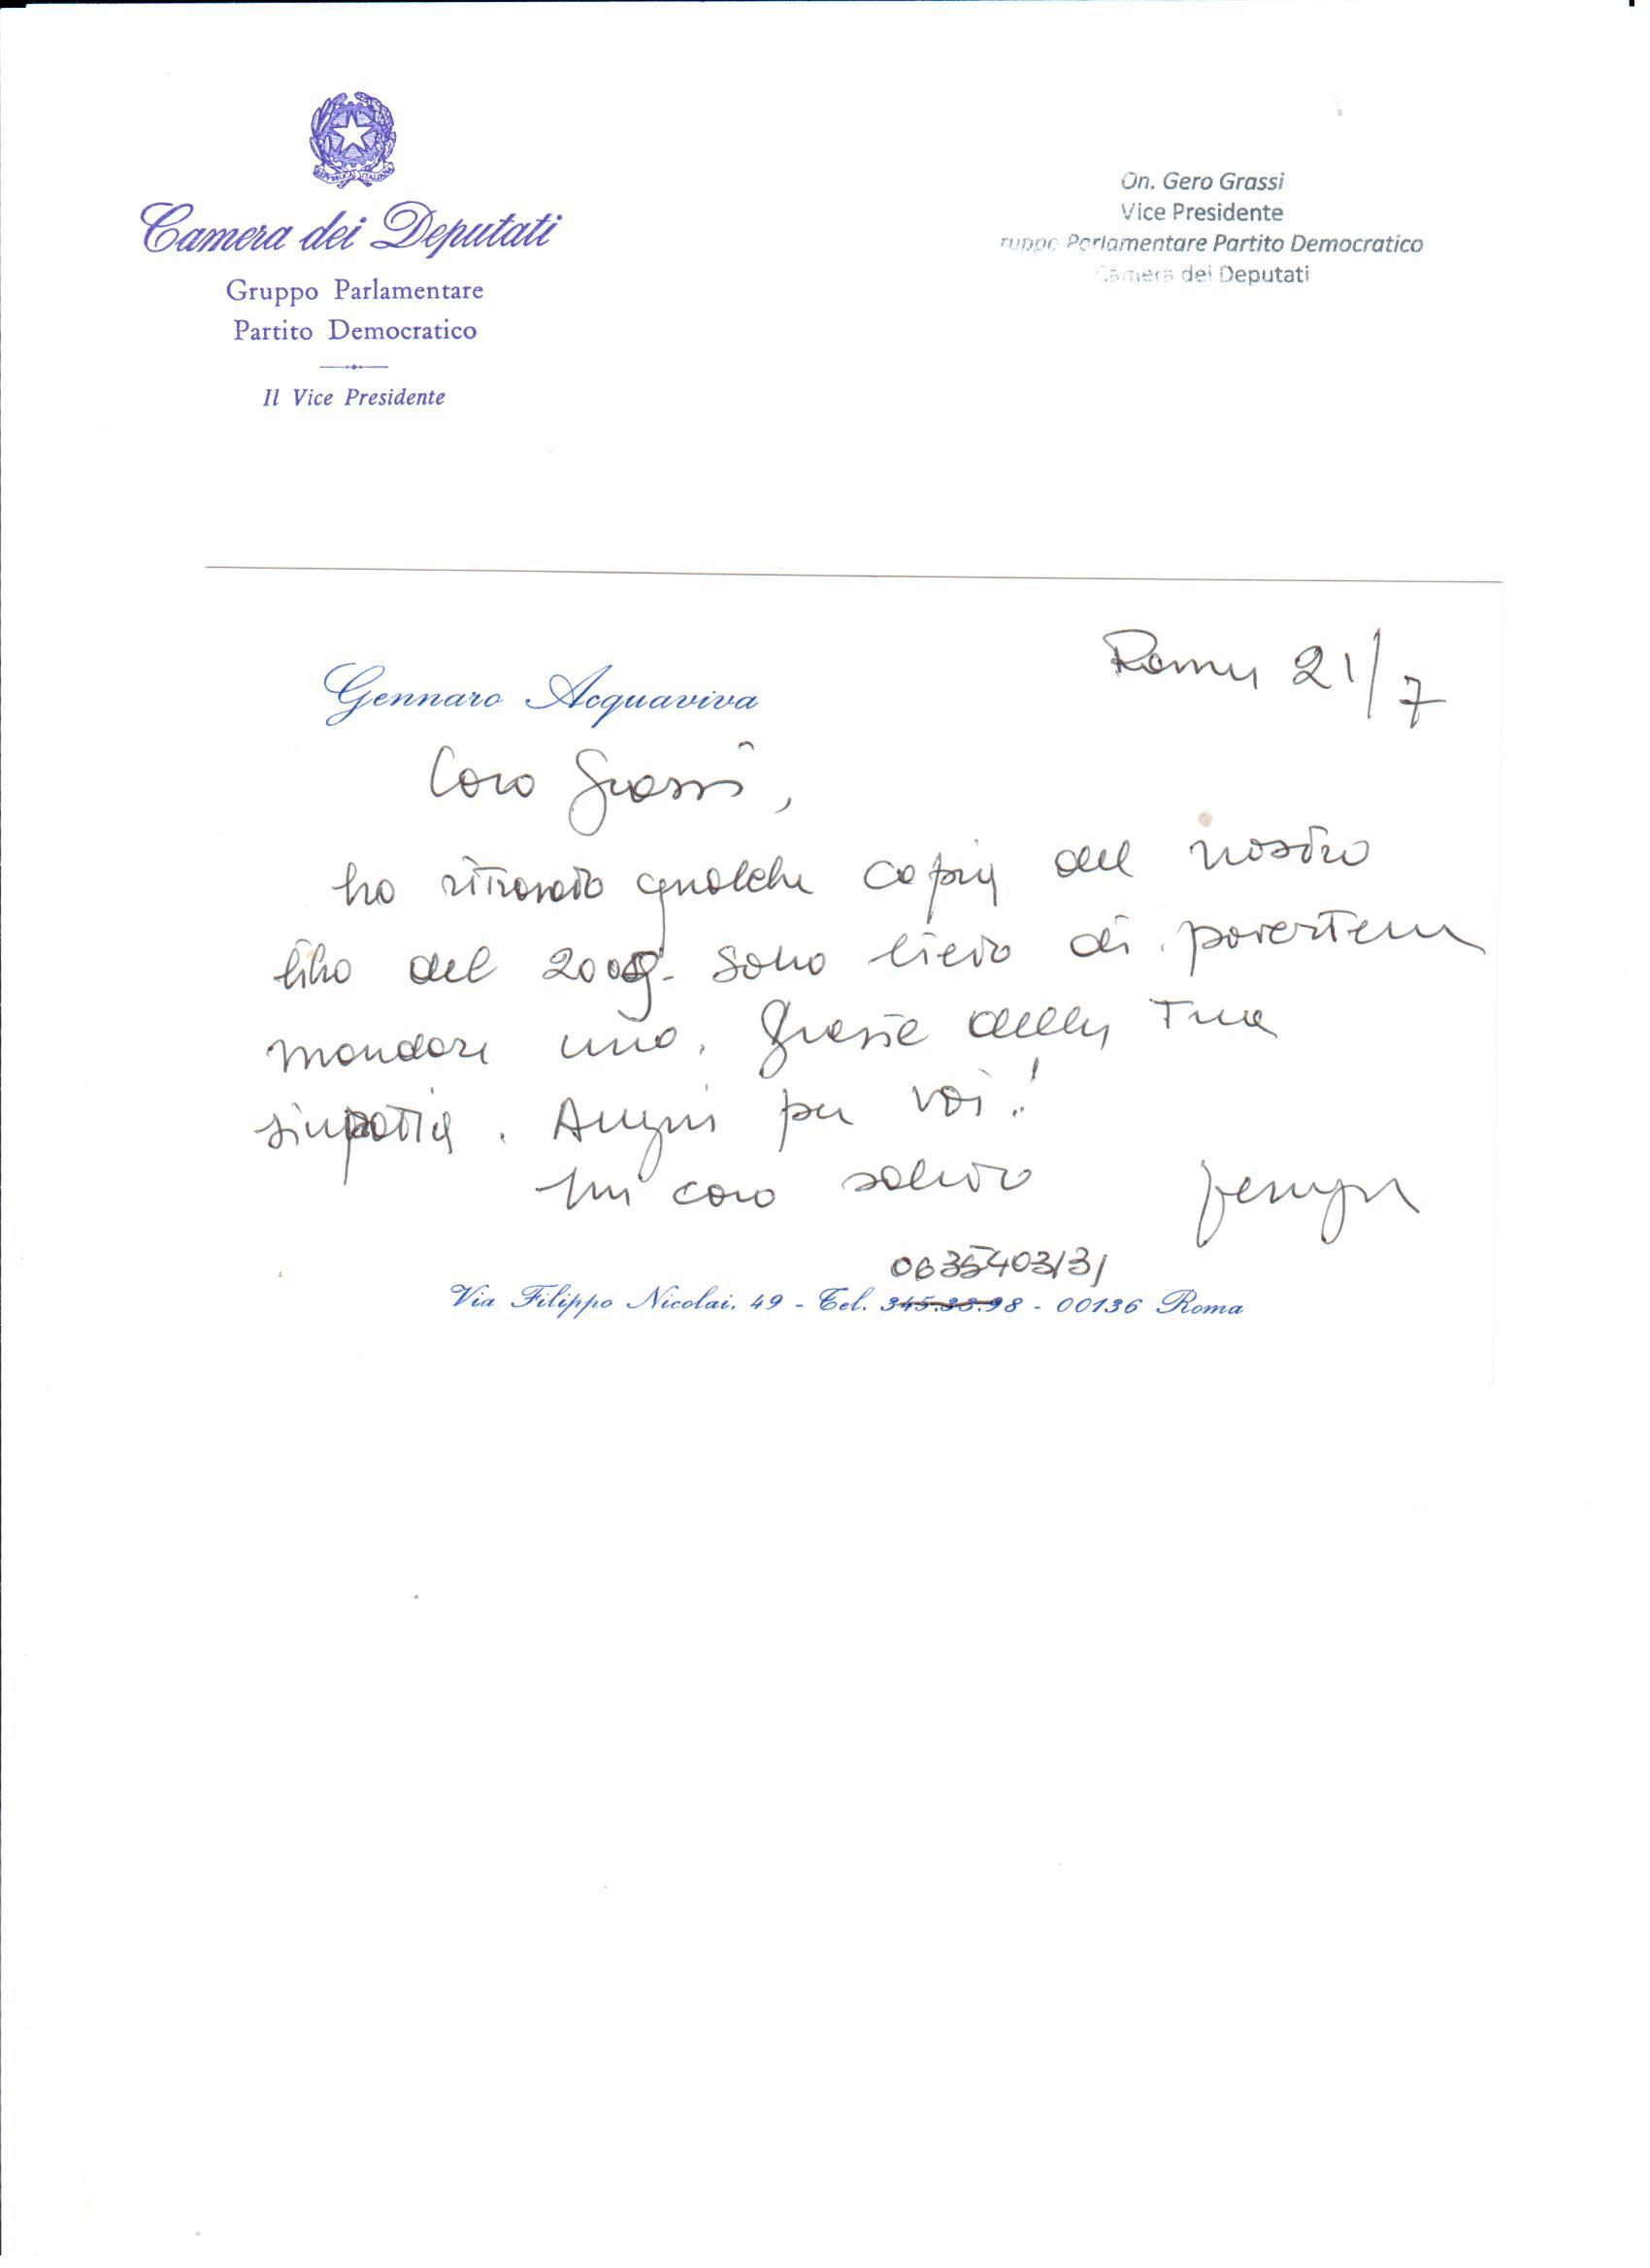 REPVBBLICA ITALIANA
Camera dei Deputati
Gruppo Parlamentare
Partito Democratico
Il Vice Presidente
On. Gero Grassi
Vice Presidente
ruppo Parlamentare Partito Democratico
Camera dei Deputati
Roma 21/7
Gennaro Acquaviva
Caro Grassi,
ho ritrovato qualche copia del nostro
libro del 2008. Sono lieto di potertene
mandare uno. Grazie della Tua
simpatia. Auguri per voi!
Un caro saluto
063540313/
Via Filippo Nicolai, 49 - Tel. 345.33.98 - 00136 Roma